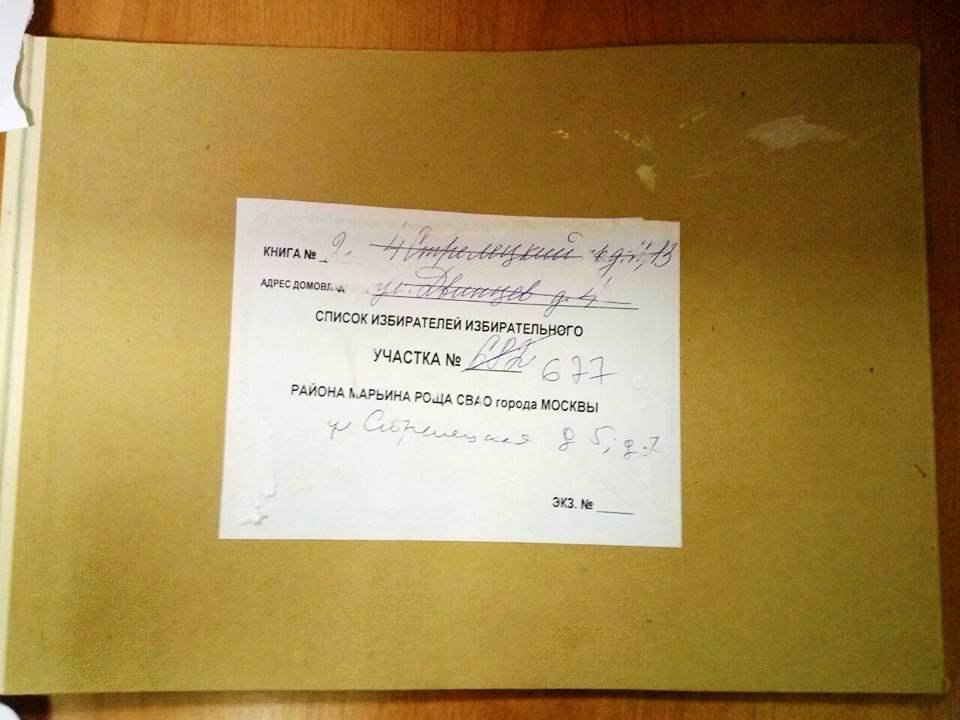 КНИГА № 2. 4 Стрелецкий д. 11, 13
АДРЕС ДОМОВЛАД ул. Двинцев д. 4
СПИСОК ИЗБИРАТЕЛЕЙ ИЗБИРАТЕЛЬНОГО
УЧАСТКА № 682 677
РАЙОНА МАРЬИНА РОЩА СВАО города МОСКВЫ
ул Стрелецкая д 5, д.7
ЭКЗ. №